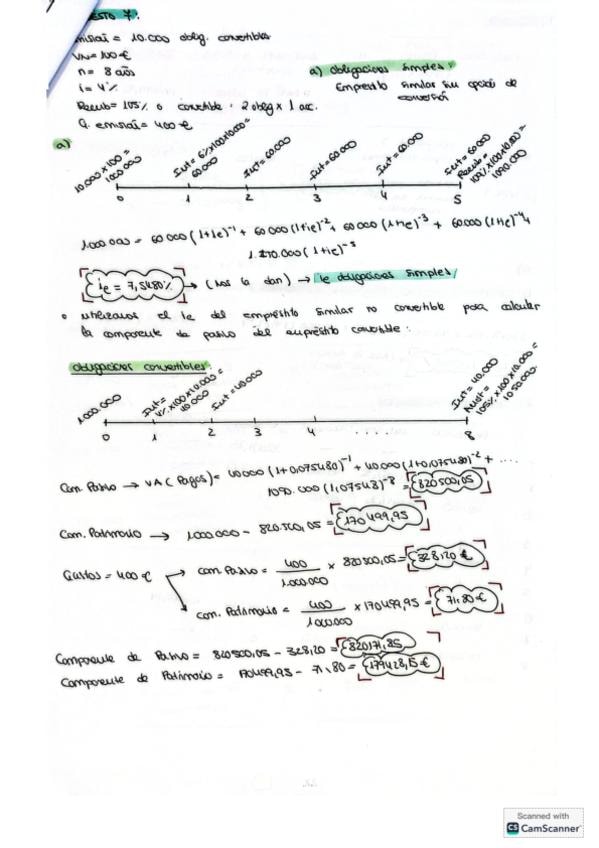 ESTO 7:
emisión = 10.000 oblig. convertibles
VN = 100 €
n = 8 años
i = 4%
Reemb = 105% o convertible: 2 oblig x 1 acc.
G. emisión = 400 €
a) Obligaciones simples:
Empréstito similar sin opción de conversión
a)
10.000 x 100 = 1.000.000
Int = 6% x 100 x 10.000 = 60.000
Int = 60.000
Int = 60.000
Int = 60.000
Int = 60.000
Reemb = 105% x 100 x 10.000 = 1.050.000
0 1 2 3 4 5
1.000.000 = 60.000 (1+ie)⁻¹ + 60.000 (1+ie)⁻² + 60.000 (1+ie)⁻³ + 60.000 (1+ie)⁻⁴ +
1.110.000 (1+ie)⁻⁵
ie = 7,5480% → (nos la dan) → ie obligaciones simples/
o utilizamos el ie del empréstito similar no convertible para calcular
la componente de pasivo del empréstito convertible:
Obligaciones convertibles:
1.000.000
Int = 4% x 100 x 10.000 = 40.000
Int = 40.000
Int = 40.000
Amort = 105% x 100 x 10.000 = 1.050.000
0 1 2 3 4 .... 8
Com. Pasivo → VA (Pagos) = 40.000 (1+0,075480)⁻¹ + 40.000 (1+0,075480)⁻² + ....
1090.000 (1,07548)⁻⁸ = 820500,05
Com. Patrimonio → 1.000.000 - 820.500,05 = 170499,95
Gastos = 400 €
com. Pasivo = 400/1.000.000 x 820500,05 = 328,20 €
com. Patrimonio = 400/1.000.000 x 170499,95 = 71,80 €
Componente de Pasivo = 820500,05 - 328,20 = 820171,85
Componente de Patrimonio = 170499,95 - 71,80 = 179428,15 €
Scanned with
CS CamScanner